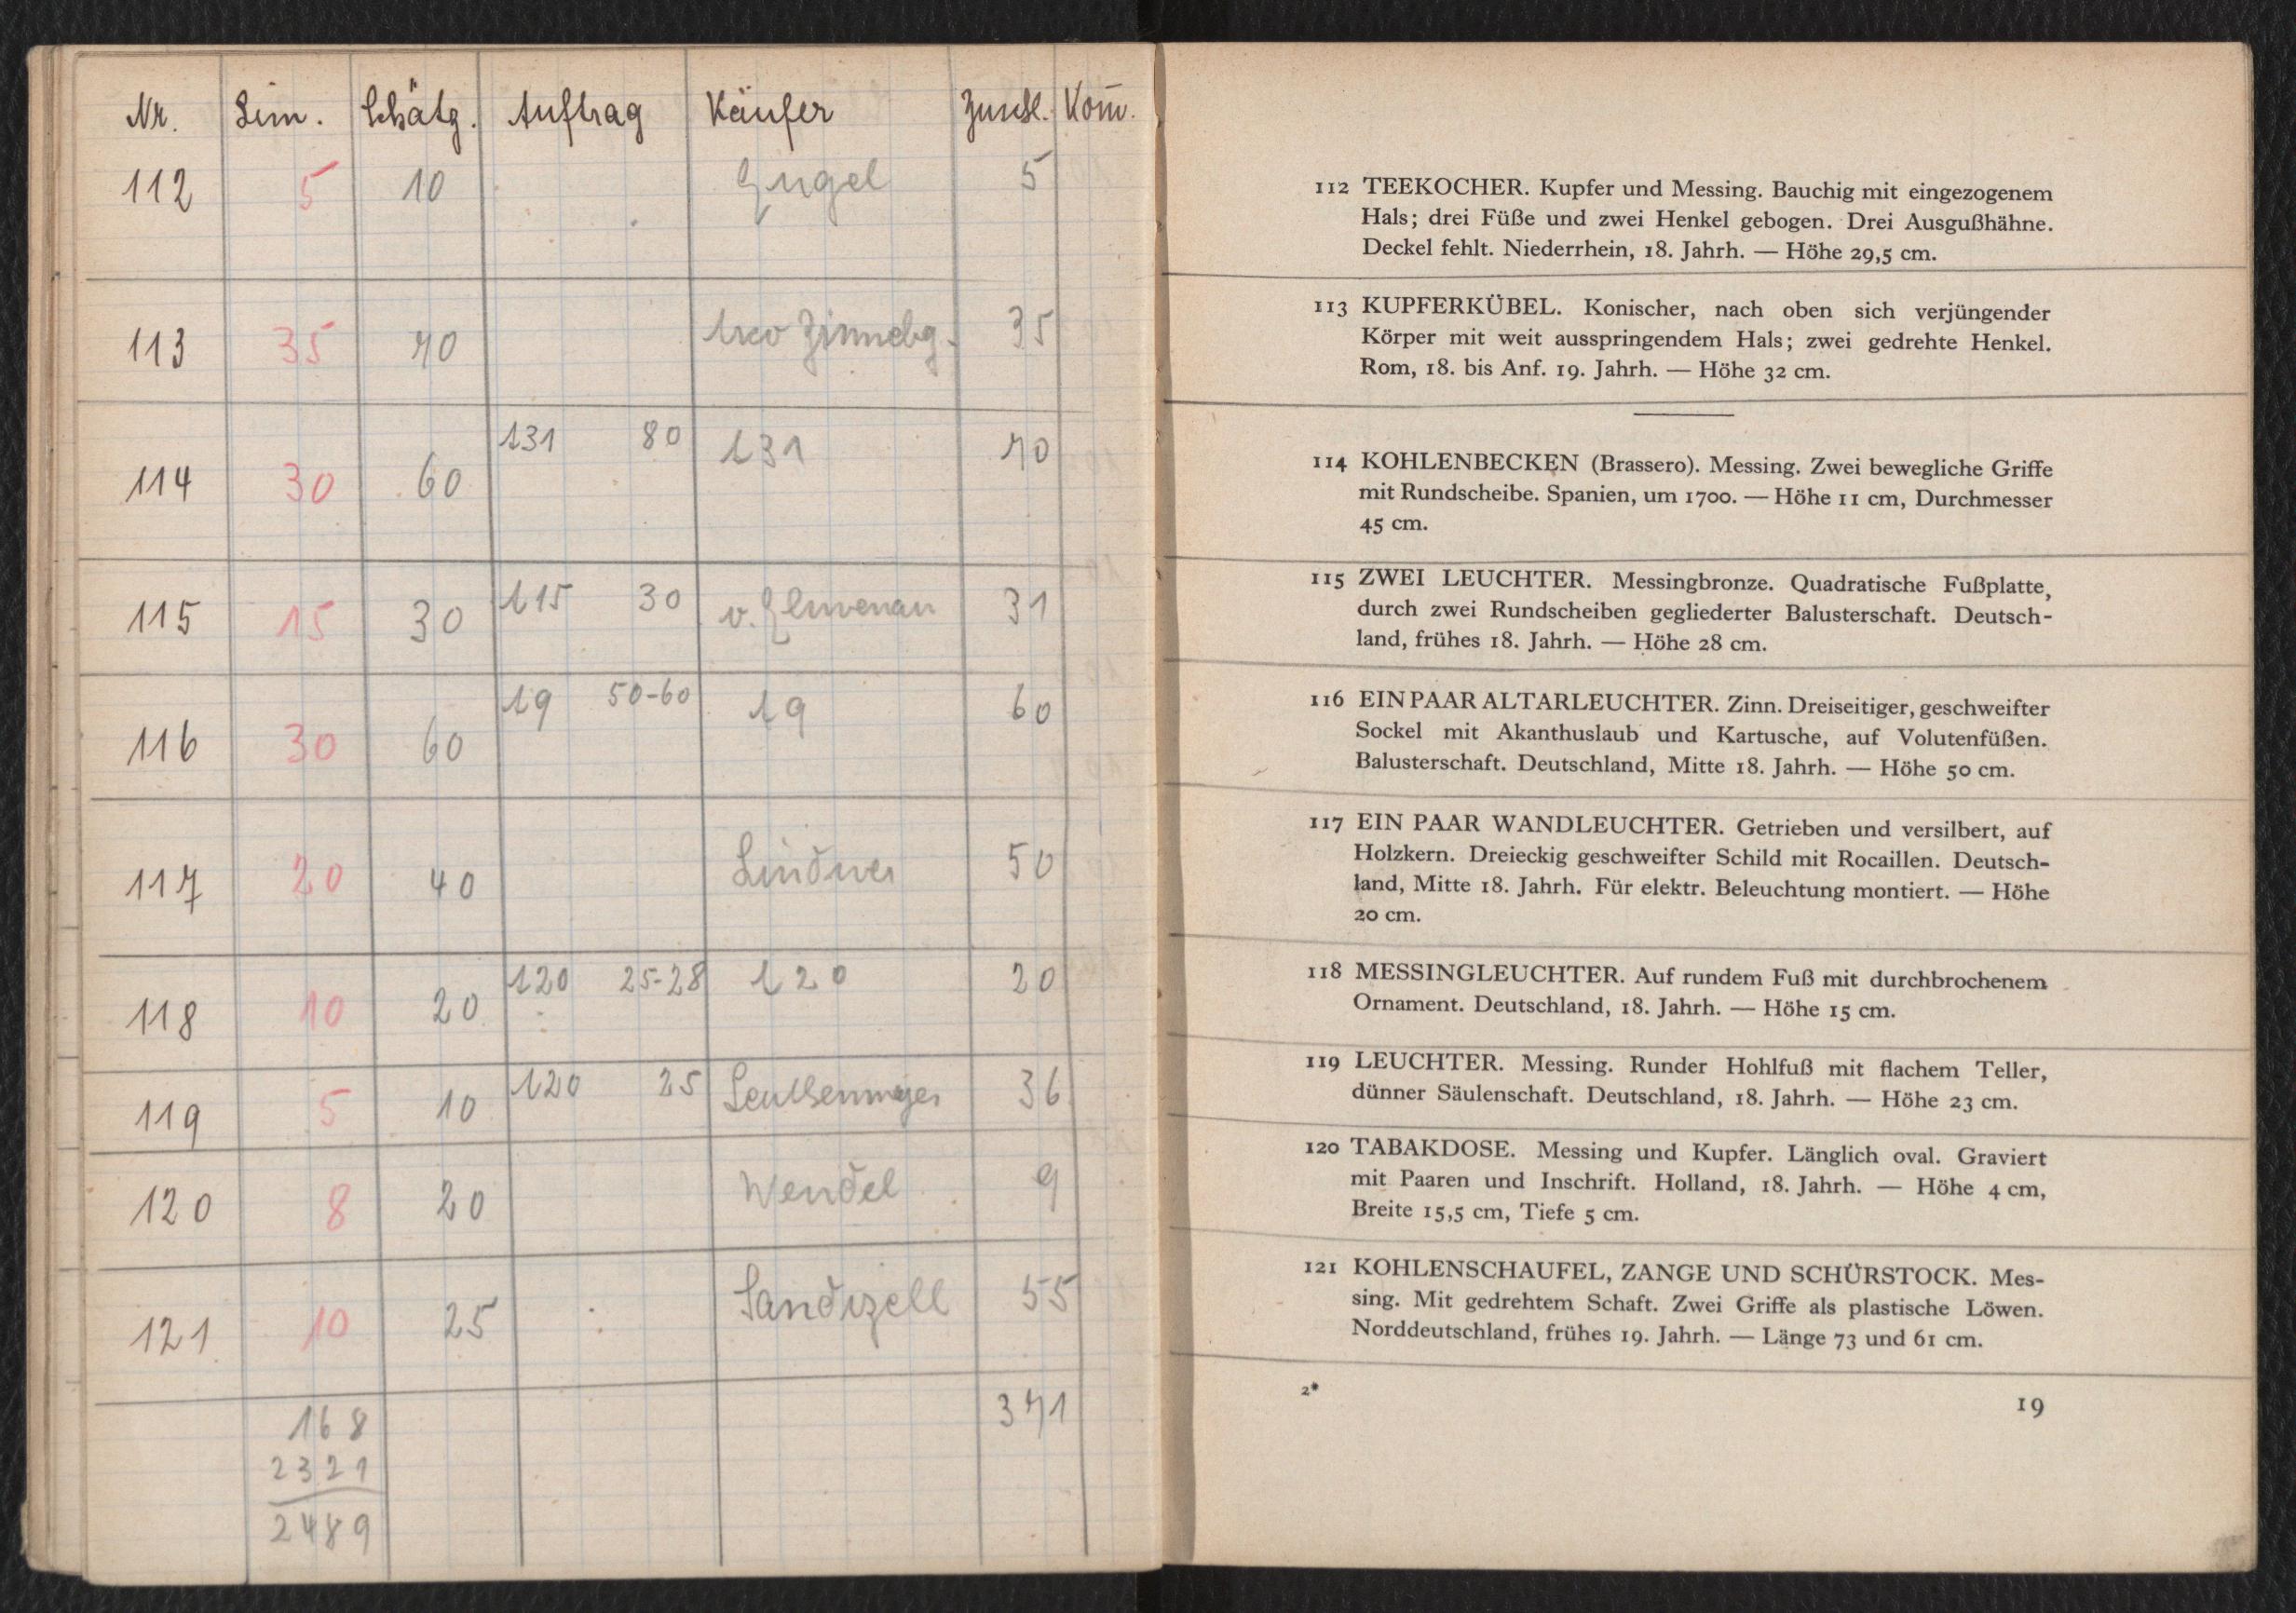 Nr. Lim. Schätzg. Auftrag Käufer Zuschl. Kom̄.
112 5 10 Engel 5
113 35 70 Arco Zinnebg. 35
114 30 60 A31 80 A31 70
115 15 30 A15 30 v. Elmenau 31
116 30 60 A9 50-60 A9 60
117 20 40 Lindner 50
118 10 20 A20 25-28 A20 20
119 5 10 A20 25 36
120 8 20 Wendel 9
121 10 25 Sandizell 55
168 371
2321
2489
112 TEEKOCHER. Kupfer und Messing. Bauchig mit eingezogenem
Hals; drei Füße und zwei Henkel gebogen. Drei Ausgußhähne.
Deckel fehlt. Niederrhein, 18. Jahrh. — Höhe 29,5 cm.
113 KUPFERKÜBEL. Konischer, nach oben sich verjüngender
Körper mit weit ausspringendem Hals; zwei gedrehte Henkel.
Rom, 18. bis Anf. 19. Jahrh. — Höhe 32 cm.
114 KOHLENBECKEN (Brassero). Messing. Zwei bewegliche Griffe
mit Rundscheibe. Spanien, um 1700. — Höhe 11 cm, Durchmesser
45 cm.
115 ZWEI LEUCHTER. Messingbronze. Quadratische Fußplatte,
durch zwei Rundscheiben gegliederter Balusterschaft. Deutsch-
land, frühes 18. Jahrh. — Höhe 28 cm.
116 EIN PAAR ALTARLEUCHTER. Zinn. Dreiseitiger, geschweifter
Sockel mit Akanthuslaub und Kartusche, auf Volutenfüßen.
Balusterschaft. Deutschland, Mitte 18. Jahrh. — Höhe 50 cm.
117 EIN PAAR WANDLEUCHTER. Getrieben und versilbert, auf
Holzkern. Dreieckig geschweifter Schild mit Rocaillen. Deutsch-
land, Mitte 18. Jahrh. Für elektr. Beleuchtung montiert. — Höhe
20 cm.
118 MESSINGLEUCHTER. Auf rundem Fuß mit durchbrochenem
Ornament. Deutschland, 18. Jahrh. — Höhe 15 cm.
119 LEUCHTER. Messing. Runder Hohlfuß mit flachem Teller,
dünner Säulenschaft. Deutschland, 18. Jahrh. — Höhe 23 cm.
120 TABAKDOSE. Messing und Kupfer. Länglich oval. Graviert
mit Paaren und Inschrift. Holland, 18. Jahrh. — Höhe 4 cm,
Breite 15,5 cm, Tiefe 5 cm.
121 KOHLENSCHAUFEL, ZANGE UND SCHÜRSTOCK. Mes-
sing. Mit gedrehtem Schaft. Zwei Griffe als plastische Löwen.
Norddeutschland, frühes 19. Jahrh. — Länge 73 und 61 cm.
2*
19